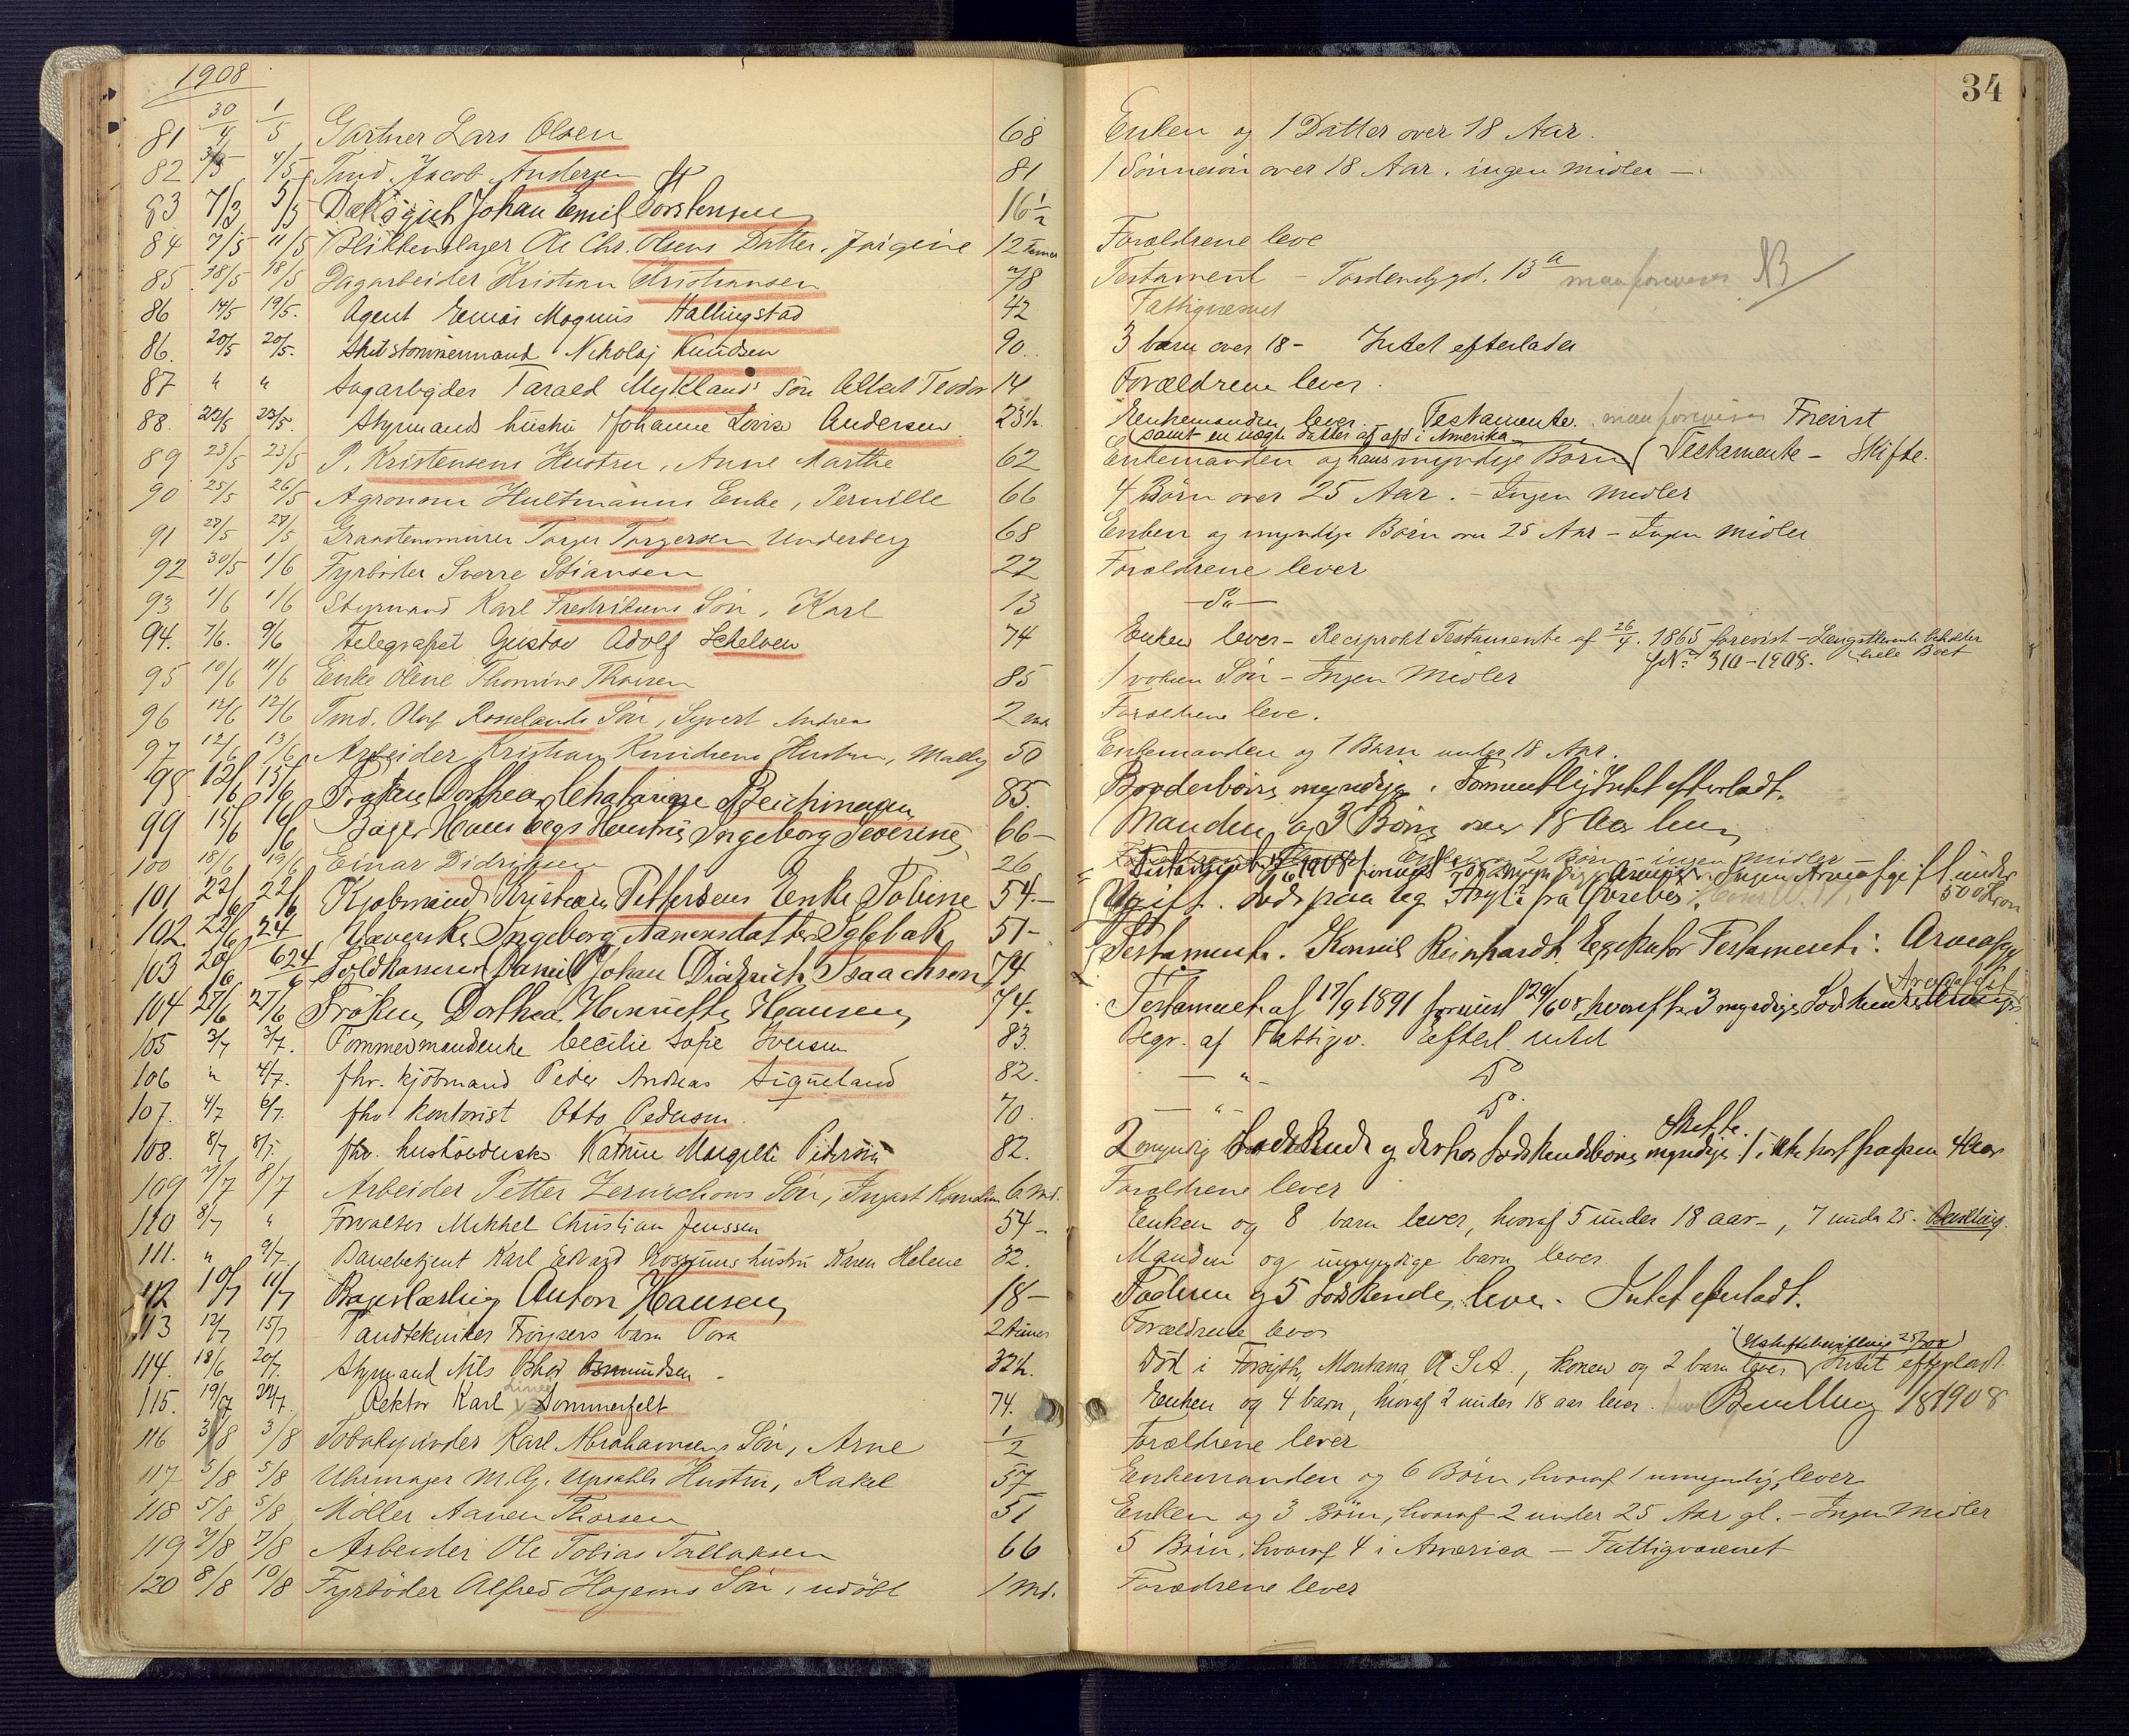 1908
34
81 30/4 1/5 Gartner Lars Olsen 68 Enken og 1 Datter over 18 Aar.
82 3/5 4/5 Tmd. Jacob Andersen 81 1 Sönnesön over 18 Aar. ingen midler —
83 7/3 5/5 Dæksgut Johan Emil Torstensen 16 1/2
84 7/5 11/5 Blikkenslager Ole Chr. Olsens Datter, Jörgine 12 Timer Forældrene leve
85 18/5 18/5 Dagarbeider Kristian Kristiansen 78 Testament - Tordenskjgd. 13 a maa forevises NB
86 14/5 19/5. Agent Enias Magnus Hallingstad 42 Fattigvæsnet
86. 20/5 20/5. Skibstømmermand Nikolaj Knudsen 90. 3 barn over 18 - Intet efterladt
87 " " Sagarbejder Tarald Myklands sön Albert Teodor 14 Forældrene lever.
88. 22/5 23/5. Styrmands hustru Johanne Lovise Andersen 23 1/2. Enkemanden lever Testamente. maa forevises Forevist
samt en uægte datter af afd i Amerika
89 23/5 23/5 P. Kristensens Hustru, Anne Marthe 62 Enkemanden og hans myndige Börn Testamente - Skifte.
90 25/5 26/5 Agronom Hultmanns Enke, Pernille 66 4 Börn over 25 Aar. - Ingen Midler
91 27/5 27/5 Graastensmurer Torger Torgersen Underberg 68 Enken og myndige Börn over 25 Aar - Ingen Midler
92 30/5 1/6 Fyrböder Sverre Stiansen 22 Forældrene lever
93 1/6 1/6 Styrmand Karl Fredriksens Sön, Karl 13 — do —
94. 7/6. 9/6 Telegrafist Gustav Adolf Schelven 74 Enken lever - Reciprokt Testamente af 26/4. 1865 forevist - Længstlevende beholder
JNo. 310-1908. hele Boet
95 10/6 11/6 Enke Olene Thomine Thorsen 85 1 voksen Sön - Ingen Midler
96 12/6 12/6 Tmd. Olaf Rosselands Sön, Syvert Andreas 2 md Forældrene leve.
97 12/6 13/6 Arbeider Kristian Knudsens Hustru, Mally 50 Enkemanden og 1 Barn under 18 Aar.
98. 12/6 15/6 Frøken Dorthea Chatarine Reichmann 85. Broderbörn myndige. Formentlig Intet efterladt.
99 15/6 16/6 Bager Hans Eegs Hustru Ingeborg Severine 66 - Manden og 3 Börn over 18 Aar lever
100 18/6 19/6 Einar Didriksen 26 Enken og 2 Börn - ingen midler -
101 22/6 22/6 Kjøbmand Kristian Pettersens Enke Tobine 54. - Ingen Arveafgift under
500 Kron
102. 22/6 24 Væverske Ingeborg Aanensdatter Iglebæk 51 - Ugift. Døde paa Eg Asyl fra Øvrebø
103 20/6 24/6 Toldkasserer Daniel Johan Diderich Isaachsen 74 Testamente. Konsul Reinhardt Exekutor Testamenti: Arveafg
104 27/6 27/6 Frøken Dorthea Henriette Hansen 74. Testament af 17/9 1891 forevist 29/6 08, hvorefter 3 myndige Sødskende
Arveafgift
105 3/7 3/7. Tømmermandenke Cecilie Sofie Iversen 83. Begr. af Fattigv. Efterl. intet
106 " 4/7. fhv. kjöbmand Peder Andreas Sigueland 82. — " — Do
107. 4/7 6/7. fhv kontorist Otto Pedersen. 70. — " — Do.
Skifte.
108. 8/7 8/7. fhv. husholderske Katrine Margrethe Pedersen 82. 2 myndig Sødskende og derhos Sødskendebörn myndige
109 7/7 8/7 Arbeider Petter Zernichows Sön, Ingart Karelius 6 Md. Forældrene lever
110 8/7 " Forvalter Mikkel Christian Jenssen 54 - Enken og 8 barn lever, hvoraf 5 under 18 aar -, 7 under 25. Bevilling.
111. " 9/7. Banebetjent Karl Edvard Rossjuns hustru Karen Helene 32. Manden og umyndige barn lever
112 10/7 11/7 Bagerlærling Anton Hansen 18 - Faderen og 5 Sødskende, lever. Intet efterladt.
113 12/7 15/7 Tandtekniker Frøysers barn Tora 2 timer Forældrene lever
Uskiftebevilling 25/7 08
114. 18/6 20/7. Styrmand Nils Osmundsen - 32 1/2. Död i Forsyth, Montana, U.S.A., konen og 2 barn lever Intet efterladt.
115. 19/7 22/7. Rektor Karl Linné Sommerfelt 74. Enken og 4 barn, hvoraf 2 under 18 aar lever. Bevilling 1/8 1908
116 3/8 3/8 Tobakspinder Karl Abrahamsens Sön, Arne 1/2 Forældrene lever
117 5/8 5/8 Uhrmager M. G. Upsahls Hustru, Rakel 57 Enkemanden og 6 Börn, hvoraf 1 umyndig, lever
118 5/8 5/8 Møller Aanen Thorsen 51 Enken og 3 Börn, hvoraf 2 under 25 Aar gl. - Ingen Midler
119 7/8 7/8 Arbeider Ole Tobias Tallaksen 66 5 Börn, hvoraf 4 i America - Fattigvæsnet
120 8/8 10/8 Fyrböder Alfred Hagens Sön, udöbt 1 Md. Forældrene lever